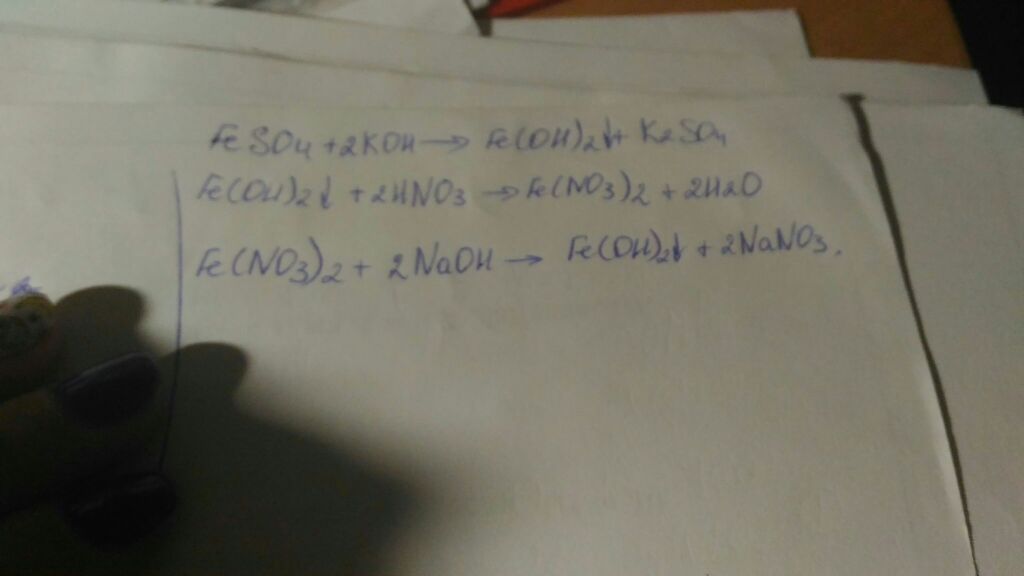 FeSO4 + 2KOH → Fe(OH)2↓ + K2SO4
Fe(OH)2↓ + 2HNO3 → Fe(NO3)2 + 2H2O
Fe(NO3)2 + 2NaOH → Fe(OH)2↓ + 2NaNO3.